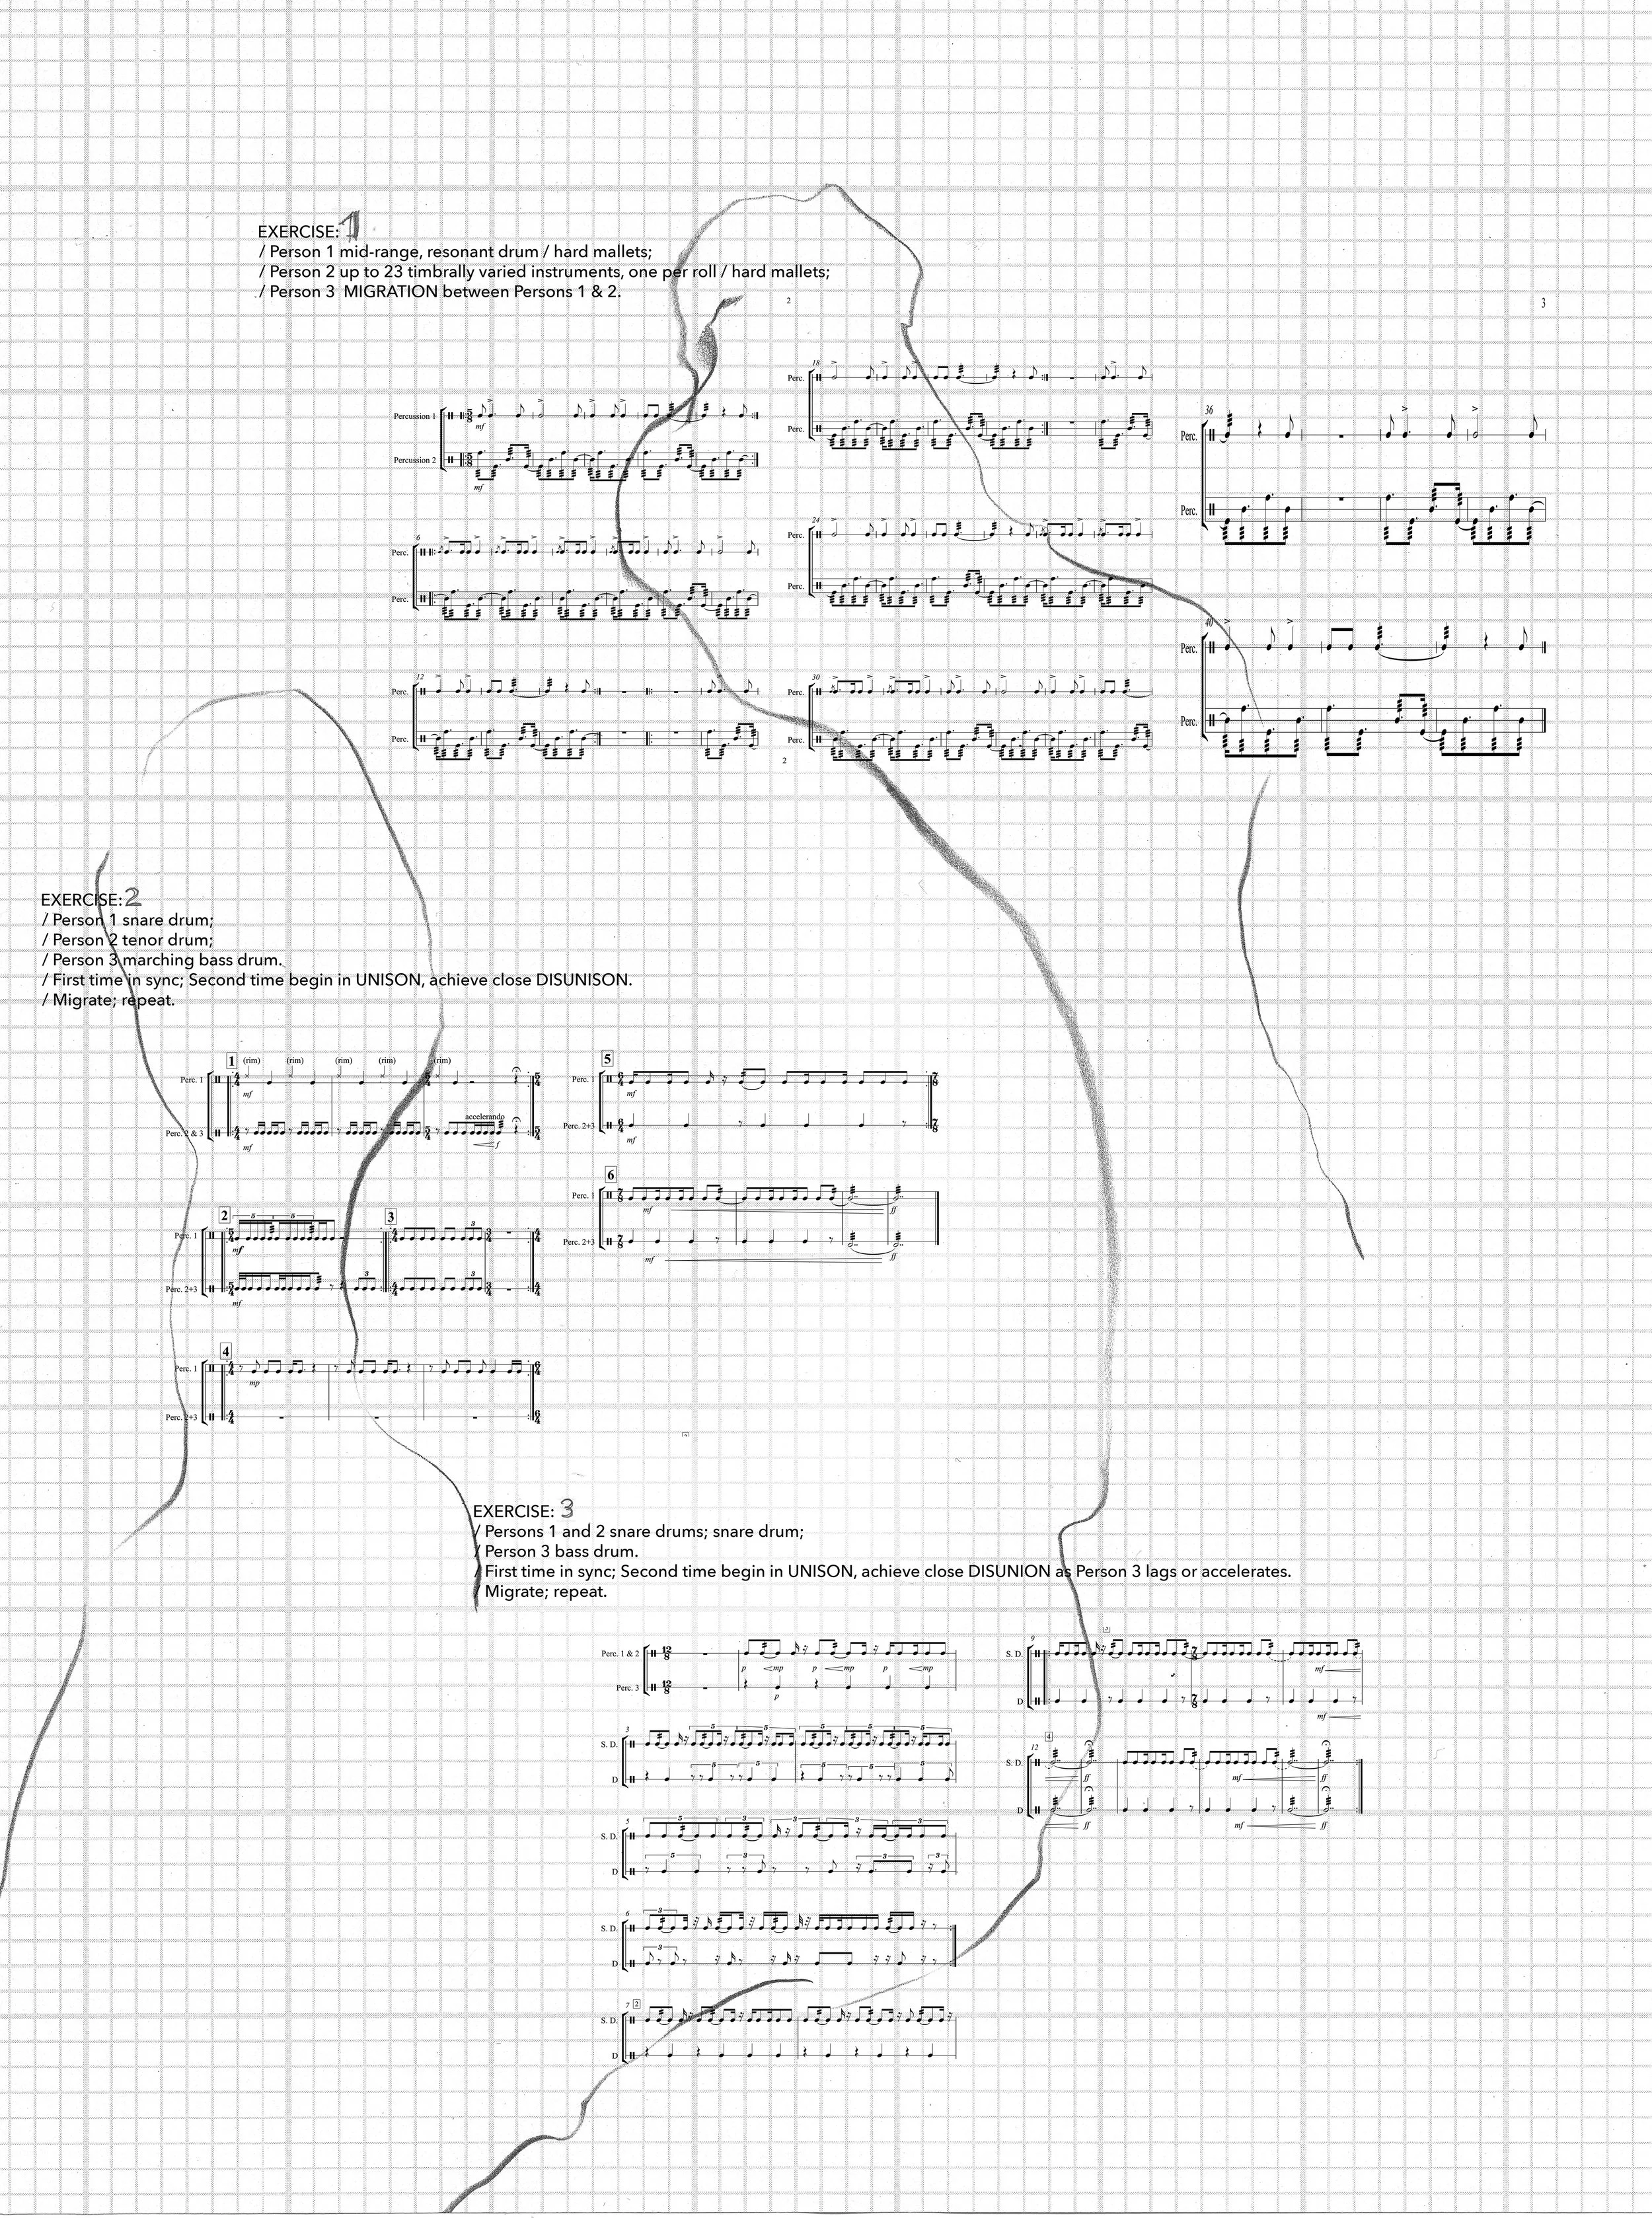 EXERCISE: 1
/ Person 1 mid-range, resonant drum / hard mallets;
/ Person 2 up to 23 timbrally varied instruments, one per roll / hard mallets;
/ Person 3  MIGRATION between Persons 1 & 2.
2
3
Percussion 1
mf
Percussion 2
mf
6
Perc.
Perc.
12
Perc.
Perc.
18
Perc.
Perc.
24
Perc.
Perc.
30
Perc.
Perc.
2
36
Perc.
Perc.
40
Perc.
Perc.
EXERCISE: 2
/ Person 1 snare drum;
/ Person 2 tenor drum;
/ Person 3 marching bass drum.
/ First time in sync; Second time begin in UNISON, achieve close DISUNISON.
/ Migrate; repeat.
1 (rim) (rim) (rim) (rim) (rim)
Perc. 1
mf
accelerando
Perc. 2 & 3
mf f
2 5 5 3 3
Perc. 1
mf
3 3
Perc. 2+3
mf
4
Perc. 1
mp
Perc. 2+3
5
Perc. 1
mf
Perc. 2+3
mf
6
Perc. 1
mf ff
Perc. 2+3
mf ff
EXERCISE: 3
/ Persons 1 and 2 snare drums; snare drum;
/ Person 3 bass drum.
/ First time in sync; Second time begin in UNISON, achieve close DISUNION as Person 3 lags or accelerates.
/ Migrate; repeat.
Perc. 1 & 2
p mp p mp p mp
Perc. 3
p
3
S. D.
D
5
S. D.
D
6
S. D.
D
7 2
S. D.
D
9
S. D.
mf
D
mf
12 4
S. D.
ff mf ff
D
ff mf ff